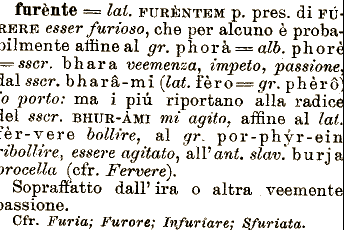 furènte = lat. FURÈNTEM p. pres. di FÚ-
RERE esser furioso, che per alcuno è proba-
bilmente affine al gr. phorà = alb. phorè
= sscr. bhara veemenza, impeto, passione,
dal sscr. bharâ-mi (lat. fèro = gr. phèrô)
io porto: ma i piú riportano alla radice
del sscr. BHUR-ÂMI mi agito, affine al lat.
fèr-vere bollire, al gr. por-phýr-ein
ribollire, essere agitato, all'ant. slav. burja
procella (cfr. Fervere).
Sopraffatto dall'ira o altra veemente
passione.
Cfr. Furia; Furore; Infuriare; Sfuriata.